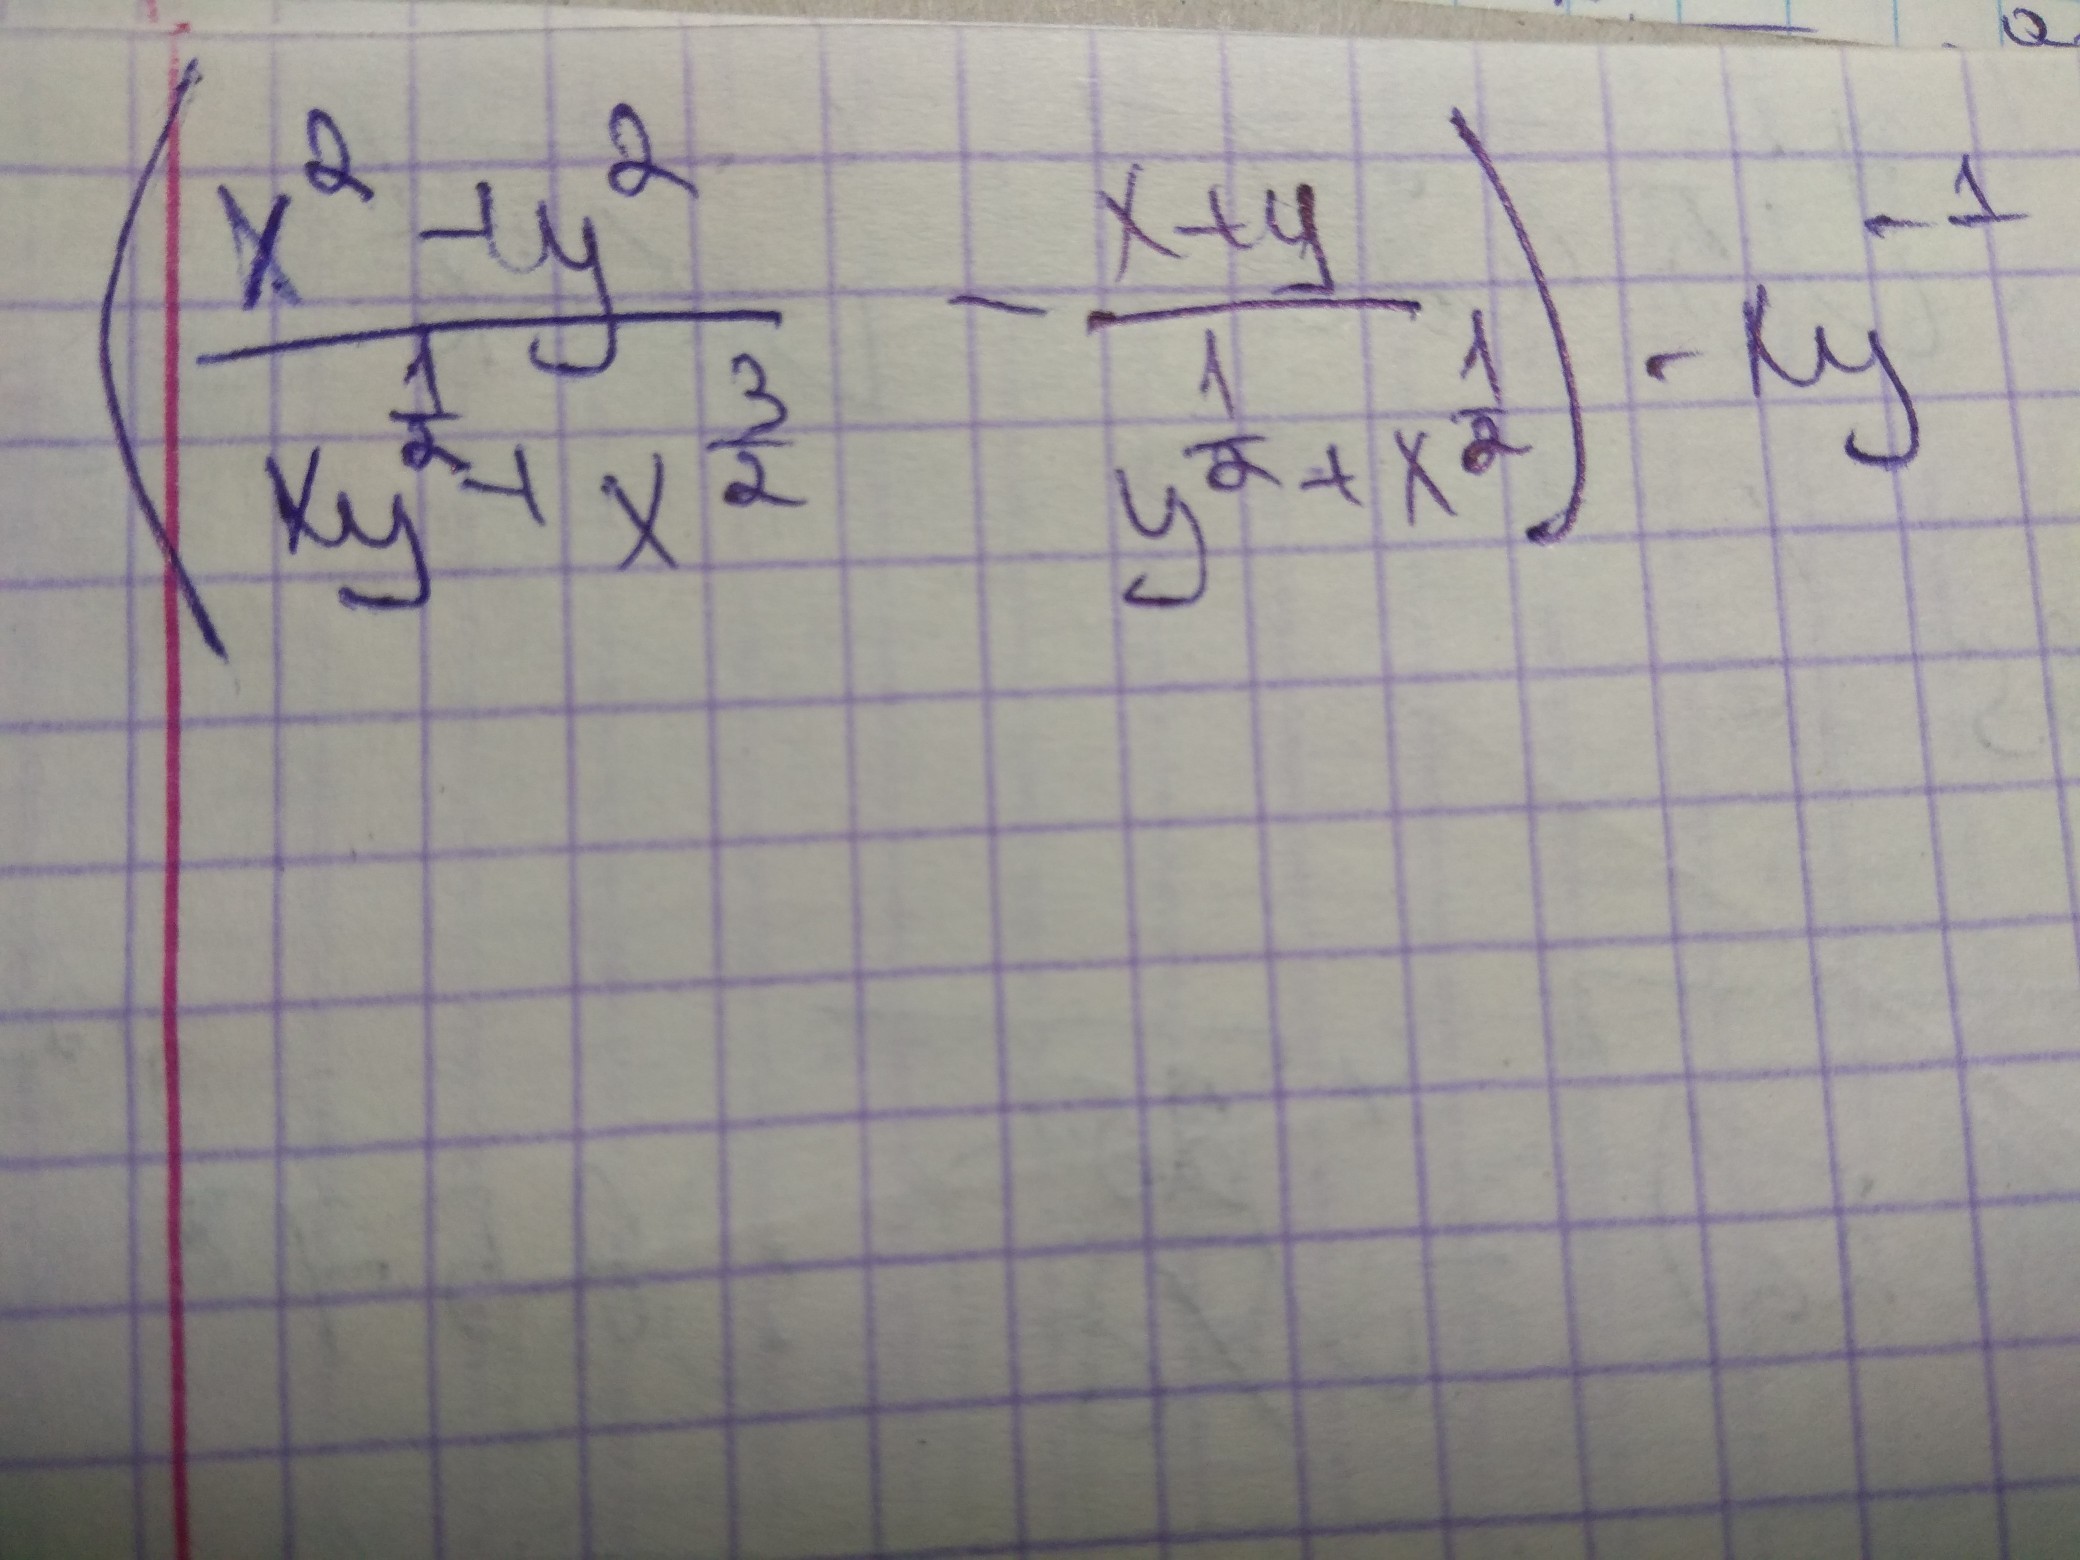 (\frac{x^2+y^2}{xy^{\frac{1}{2}}+x^{\frac{3}{2}}} - \frac{x+y}{y^{\frac{1}{2}}+x^{\frac{1}{2}}}) - xy^{-1}